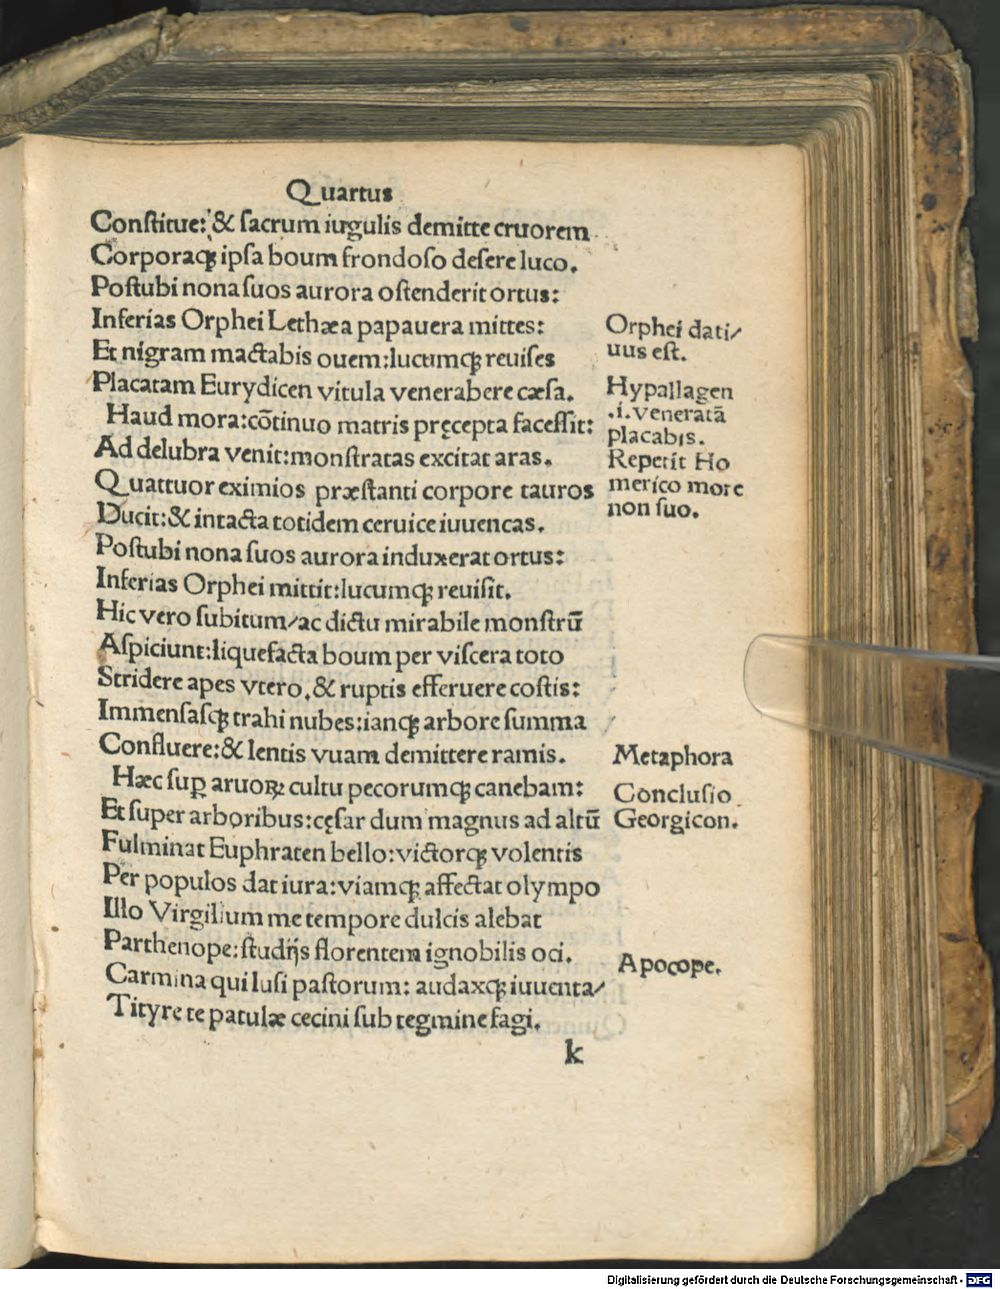 Quartus
Conſtitue: & ſacrum iugulis demitte cruorem
Corporaqꝫ ipſa boum frondoſo deſere luco.
Poſtubi nona ſuos aurora oſtenderit ortus:
Inferias Orphei Lethæa papauera mittes:
Et nigram mactabis ouem: lucumqꝫ reuiſes
Placatam Eurydicen vitula venerabere cæſa.
Haud mora: cõtinuo matris pręcepta faceſſit:
Ad delubra venit: monſtratas excitat aras.
Quattuor eximios præſtanti corpore tauros
Ducit: & intacta totidem ceruice iuuencas.
Poſtubi nona ſuos aurora induxerat ortus:
Inferias Orphei mittit: lucumqꝫ reuiſit.
Hic vero ſubitum/ac dictu mirabile monſtrū
Aſpiciunt: liquefacta boum per viſcera toto
Stridere apes vtero, & ruptis efferuere coſtis:
Immenſaſqꝫ trahi nubes: ianqꝫ arbore ſumma
Confluere: & lentis vuam demittere ramis.
Hæc ſuꝑ aruoꝝ cultu pecorumqꝫ canebam:
Et ſuper arboribus: cęſar dum magnus ad altū
Fulminat Euphraten bello: victorqꝫ volentis
Per populos dat iura: viamqꝫ affectat olympo
Illo Virgilium me tempore dulcis alebat
Parthenope: ſtudijs florentem ignobilis oci.
Carmina qui luſi paſtorum: audaxqꝫ iuuenta/
Tityre te patulæ cecini ſub tegmine fagi.
k
Orphei dati/
uus eſt.
Hypallagen
.i. veneratā
placabis.
Reperit Ho
merico more
non ſuo.
Metaphora
Concluſio
Georgicon.
Apocope.
Digitalisierung gefördert durch die Deutsche Forschungsgemeinschaft - DFG